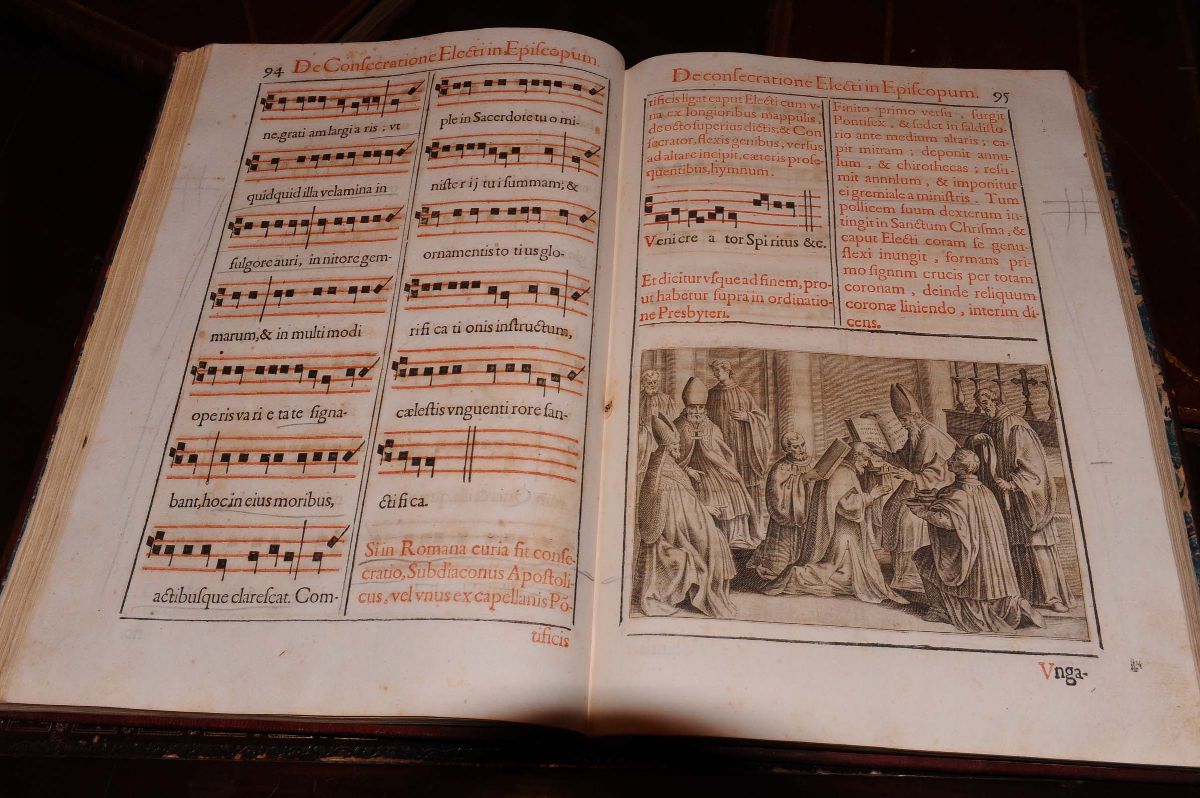 94 De Consecratione Electi in Episcopum.
ne, grati am largi a ris ; vt
quidquid illa velamina in
fulgore auri, in nitore gem-
marum, & in multi modi
ope ris va ri e ta te signa-
bant, hoc, in eius moribus,
actibusque clarescat. Com-
ple in Sacerdote tu o mi-
niste r ij tu i summam; &
ornamentis to ti us glo-
rifi ca ti onis instructum,
cælestis vnguenti rore san-
cti fi ca.
Si in Romana curia fit conse-
cratio, Subdiaconus Apostoli-
cus, vel vnus ex capellanis Põ-
tificis
De consecratione Electi in Episcopum. 95
tificis ligat caput Electi cum v-
na ex longioribus mappulis,
de octo superius dictis; & Con
secrator, flexis genibus, versus
ad altare incipit, cæteris prose-
quentibus, hymnum.
Veni cre a tor Spi ritus &c.
Et dicitur vsque ad finem, pro-
ut habetur supra in ordinatio-
ne Presbyteri.
Finito primo versu, surgit
Pontifex, & sedet in faldisto-
rio ante medium altaris; ca-
pit mitram; deponit annu-
lum, & chirothecas; resu-
mit annulum, & imponitur
ei gremiale a ministris. Tum
pollicem suum dexterum in-
tingit in Sanctum Chrisma, &
caput Electi coram se genu-
flexi inungit, formans pri-
mo signum crucis per totam
coronam, deinde reliquum
coronæ liniendo, interim di-
cens.
Vnga-